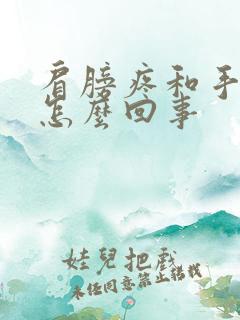 肩膀疼和手
怎麼回事
娃兒把戲
未經同意禁止轉載